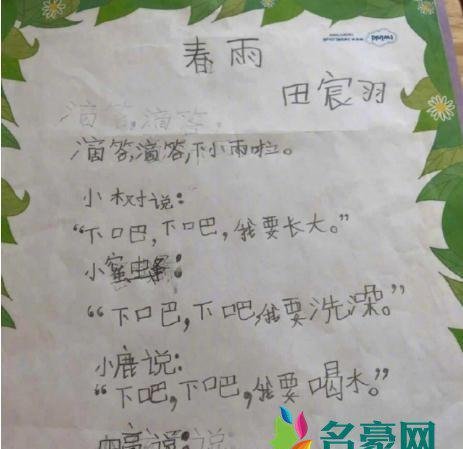 春雨
田宸羽
滴答,滴答,
滴答,滴答,下小雨啦。
小树说:
“下吧,下吧,我要长大。”
小蜜虫条:
“下吧,下吧,我要洗澡。”
小鹿说:
“下吧,下吧,我要喝水。”
说:说:
名豪网